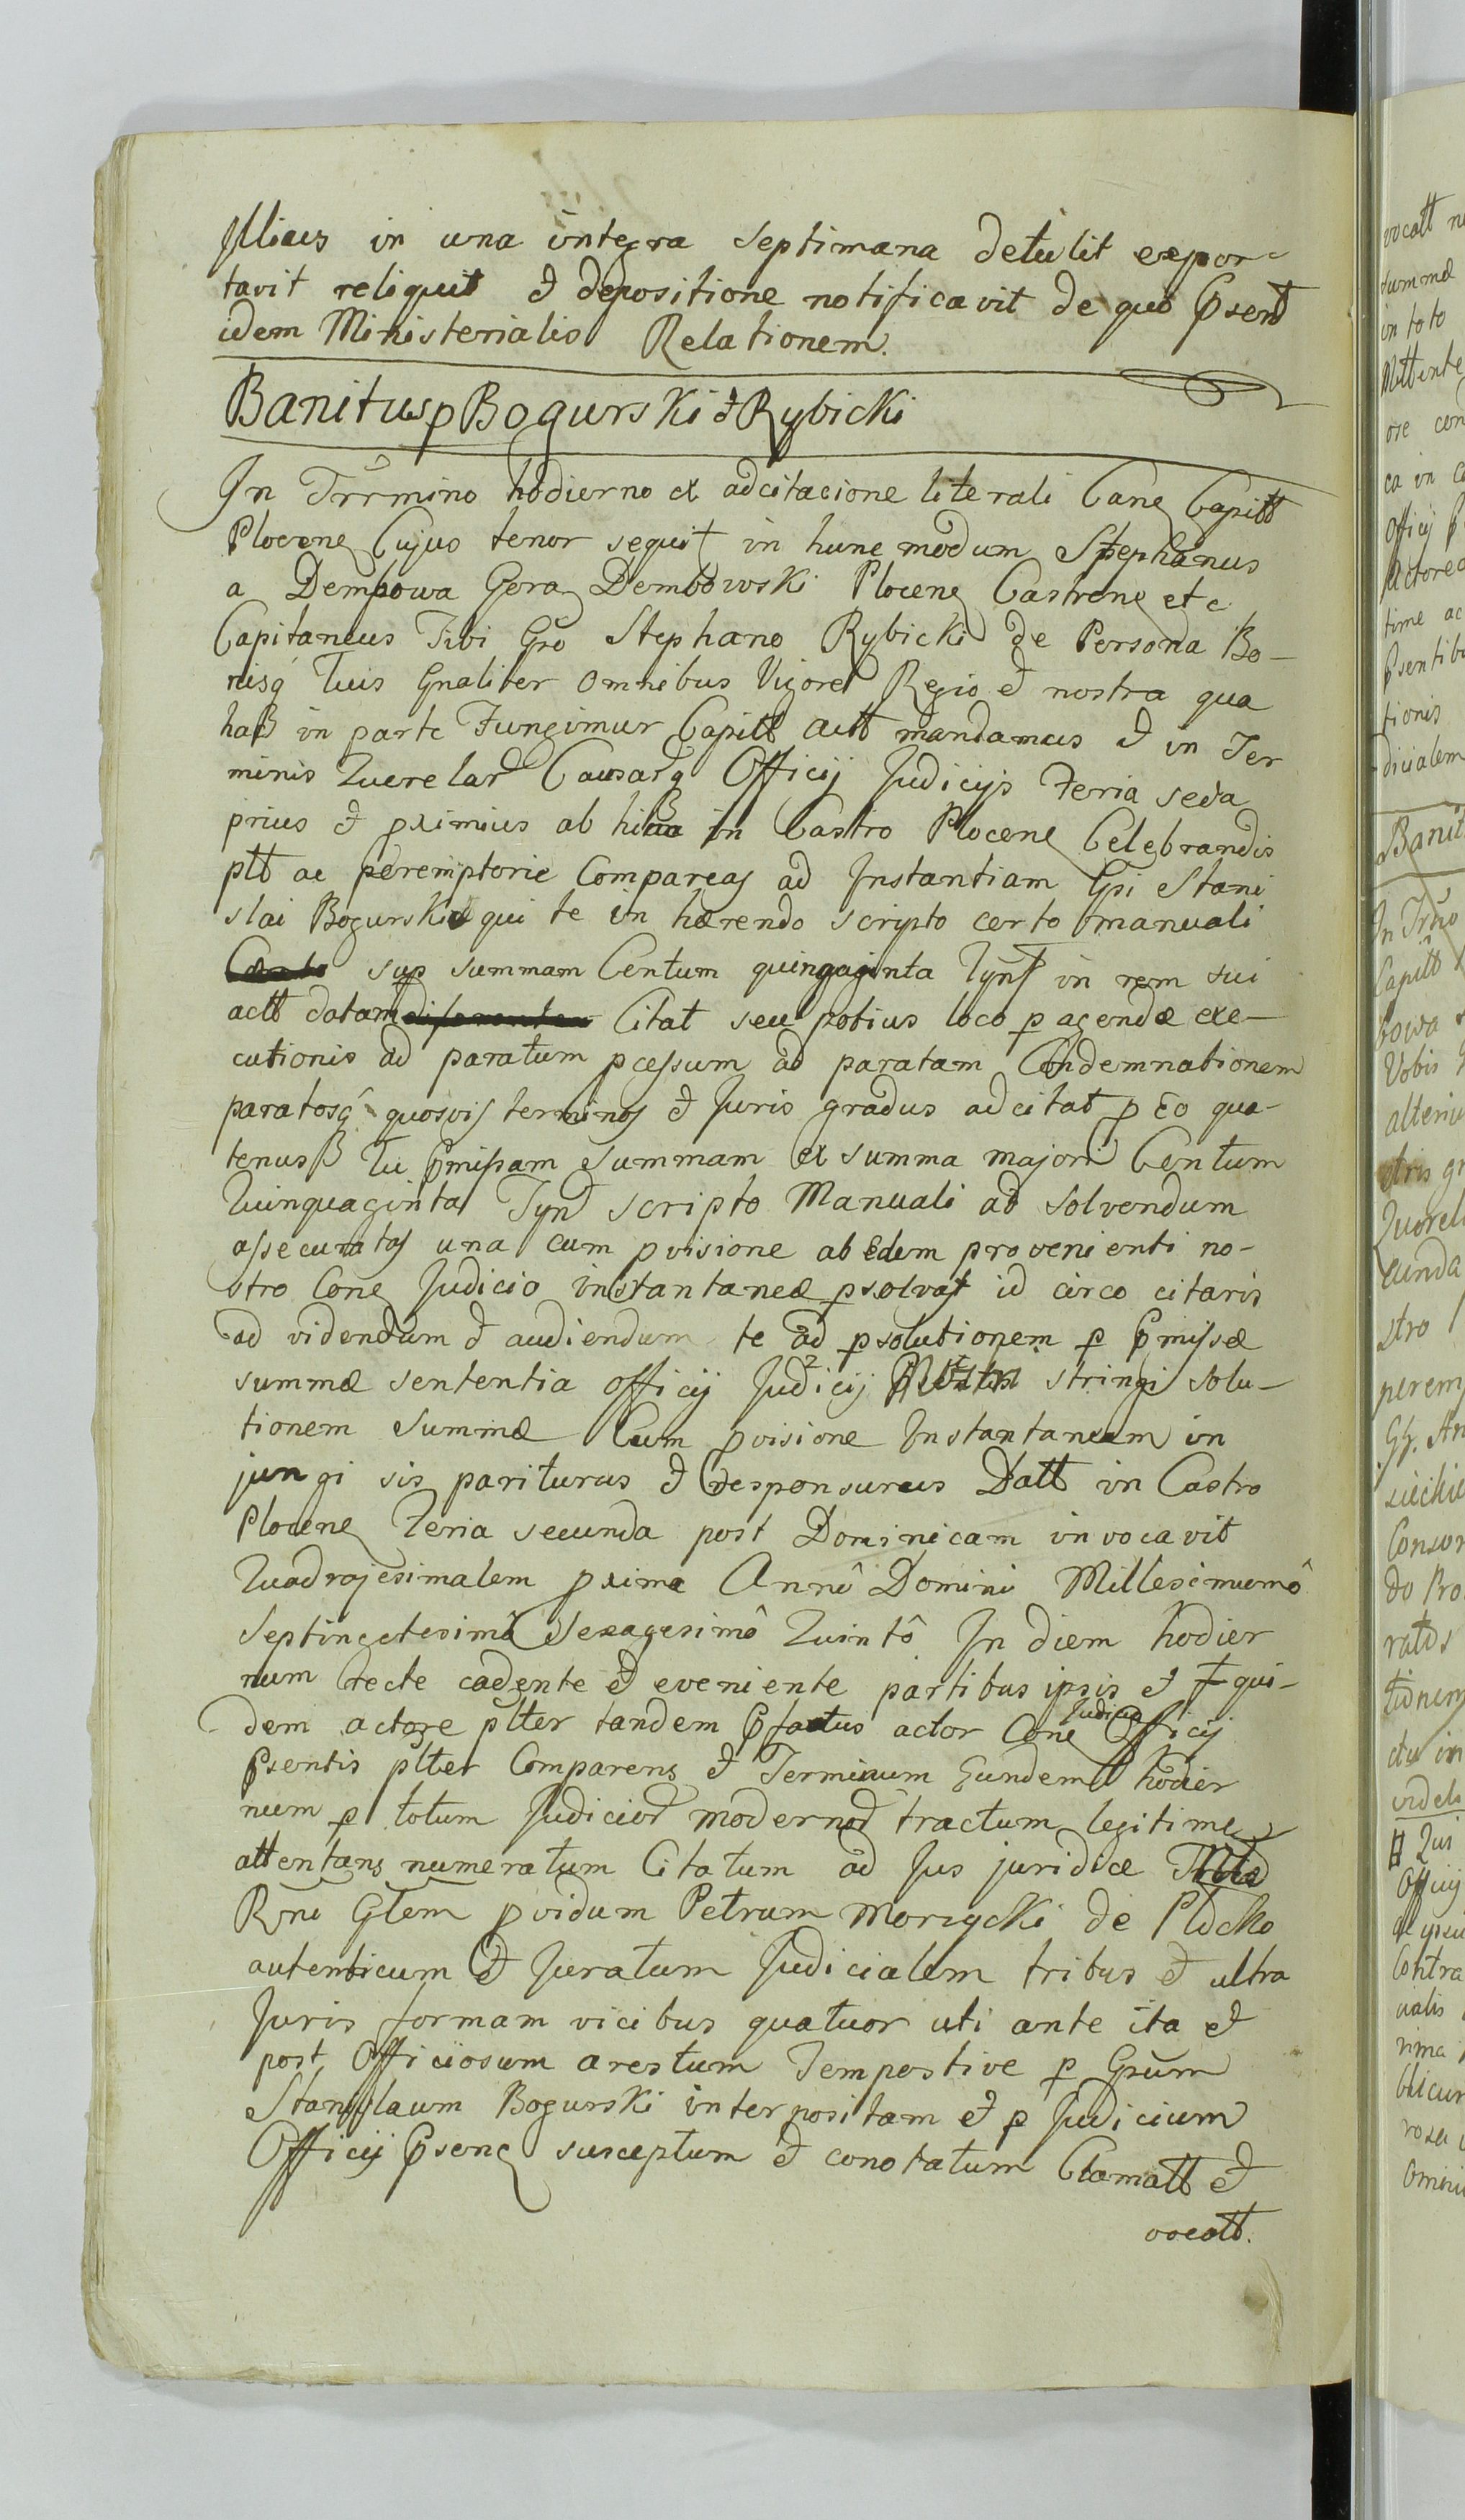 Illius in una integra Septimana detulit expor-
tavit reliquit et depositione notificavit de quo Psent
idem Ministerialis Relationem.
Banitus p Bogurski et Rybicki
In Trrmino hodierno ex adcitacione literali Cane Capitt
Plocene Cujus tenor sequit in hunc modum Stephanus
a Dempowa Gora Dembowski Plocene Castrene etc
Capitaneus Tibi Gso Stephano Rybicki de Persona Bo-
nisq tuis Gnaliter omnibus Vigore Regio et nostra qua
hac in parte Fungimur Capitt Actt mandamus et in Ter
minis Querelar Causarq Officij Judicijs Feria sexta
prius et pximius ab hinc in Castro Plocene Celebrandis
ptt ac peremptorie Compareas ad Instantiam Gsi Stani
slai Bogurski qui te in hærendo scripto certo manuali
sup summam Centum quinquaginta Tynf in rem sui
actt datam Citat seu potius loco p agendæ exe-
cutionis ad paratum pcessum ad paratam Condemnationem
paratosq quosvis terminos et Juris gradus adcitat p Eo qua-
tenus tu Pmissam Summam ex summa majori Centum
Quinquaginta Tynf scripto Manuali ad solvendum
assecuratas una cum pvisione ab Edem provenienti no-
stro Cone Judicio instantaneæ psolvas id circo citaris
ad videndum et audiendum te ad psolutionem p Pmissæ
summæ sententia officij Judicij stringi solu-
tionem Summæ Cum pvisione Instantaneam in
jungi sis pariturus et responsurus Datt in Castro
Plocene Feria secunda post Dominicam invocavit
Quadrajesimalem pxima Annô Domini Millesimumô
Septingetesimô Sexagesimô Quintô In diem hodier
num recte cadente et eveniente partibus ipsis et qui-
dem actore ptter tandem Pfatus actor Cone Judicio Officij
Psentis ptter Comparens et Terminum Eundem hodier
num p totum Judicior modernor tractum legitime
attentans numeratum Citatum ad Jus juridice
Rgni Gtem pvidum Petrum Morzycki de Plocko
autenticum et Juratum Judicialem tribus et ultra
Juris formam vicibus quatuor uti ante ita et
post Officiosum arestum Tempestive p Gsum
Stanislaum Bogurski interpositam et p Judicium
Officij Psene susceptum et conotatum Clamatt et
vocatt.